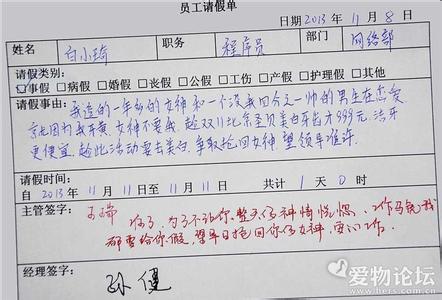 员工请假单
日期 2013 年 11 月 8 日
姓名 白小琦 职务 程序员 部门 网络部
请假类别:
☑事假 □病假 □婚假 □丧假 □公假 □工伤 □产假 □护理假 □其他
请假事由: 我追的一年多的女神和一个没我四分之一帅的男生在恋爱
就因为我牙黄女神不要我,趁双11北京圣贝美白牙齿才999元,洁牙
更便宜,趁此活动要去美白,争取抢回女神望领导准许.
请假时间:
自 2013 年 11 月 11 日至 11 月 11 日 共计 1 天 0 时
主管签字: 为了不让你整天精神恍惚,工作马虎我
都要给你假,望早日抢回你的女神,安心工作.
经理签字: 孙健
爱物论坛
www.liers.com.cn